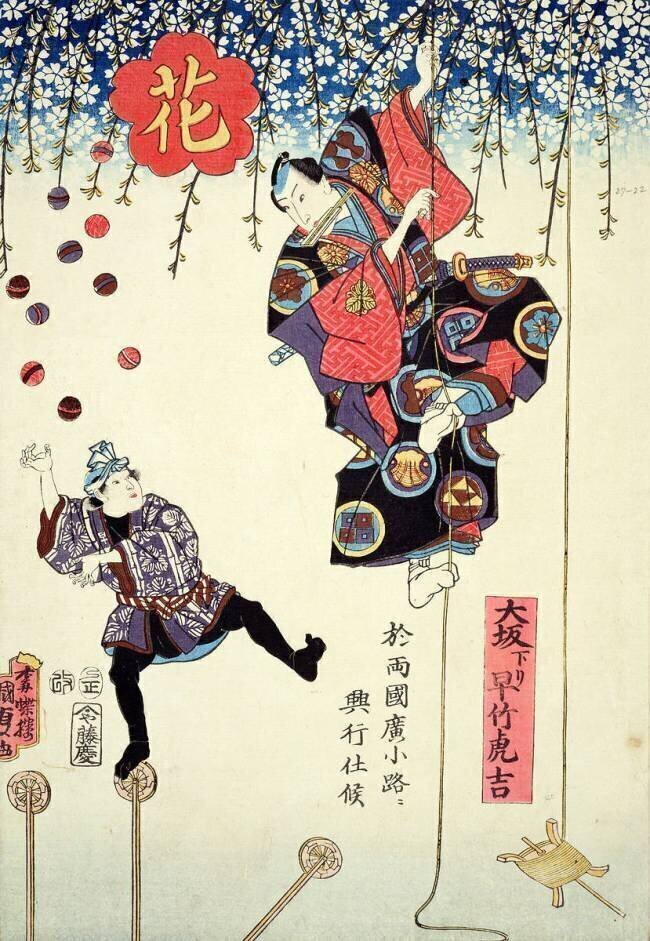 花
27-22
大坂下り 早竹虎吉
於両國廣小路ニ
興行仕候
改
藤慶
梅蝶樓
國貞画